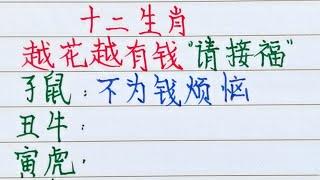 十二生肖
越花越有钱"请接福"
子鼠：不为钱烦恼
丑牛：
寅虎：